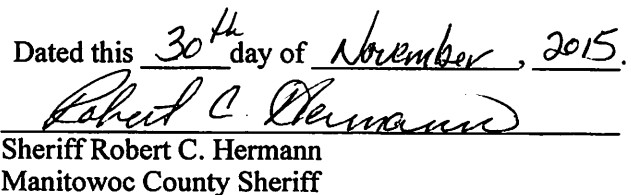 Dated this 30th day of November, 2015.
Robert C. Hermann
Sheriff Robert C. Hermann
Manitowoc County Sheriff